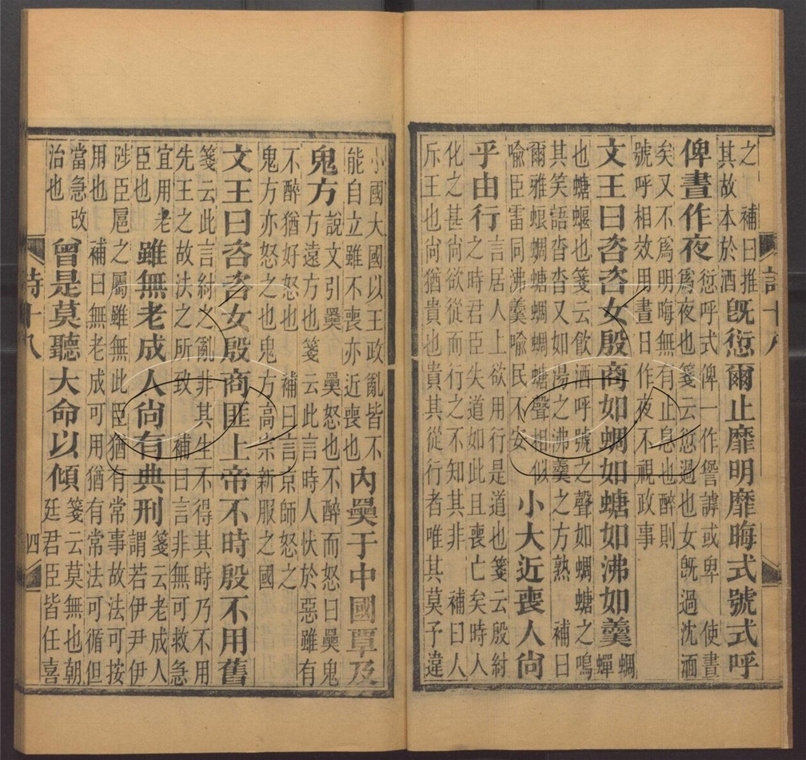 之　補曰推
其故本於酒
旣愆爾止靡明靡晦式號式呼
俾晝作夜
愆呼式俾一作謍謼或卑　使晝
爲夜也箋云愆過也女旣過沈湎
矣又不爲明晦無有止息也醉則
號呼相效用晝日作夜不視政事
文王曰咨咨女殷商如蜩如螗如沸如羹
蜩
蟬
也螗蝘也箋云飮酒號呼之聲如蜩螗之鳴
其笑語沓沓又如湯之沸羹之方熟　補曰
爾雅蜋蜩螗蜩蜩螗聲相似
喻臣雷同沸羹喻民不安
小大近喪人尙
乎由行
言居人上欲用行是道也箋云殷紂
之時君臣失道如此且喪亡矣時人
化之甚尙欲從而行之不知其非　補曰人
斥王也尙猶貴也貴其從行者唯其莫予違
小國大國以王政亂皆不
能自立雖不喪亦近喪也
內奰于中國覃及
鬼方
說文引奰　奰怒也不醉而怒曰奰鬼
方遠方也箋云此言時人忕於惡雖有
不醉猶好怒也　補曰言京師怒之
鬼方亦怒之也鬼方高宗新服之國
文王曰咨咨女殷商匪上帝不時殷不用舊
箋云此言紂之亂非其生不得其時乃不用
先王之故法之所致　補曰言非無可救急
宜用老
臣也
雖無老成人尙有典刑
箋云老成人
謂若伊尹伊
陟臣扈之屬雖無此臣猶有常事故法可按
用也　補曰無老成可用猶有常法可循但
當急改
治也
曾是莫聽大命以傾
箋云莫無也朝
廷君臣皆任喜
詩十八
四